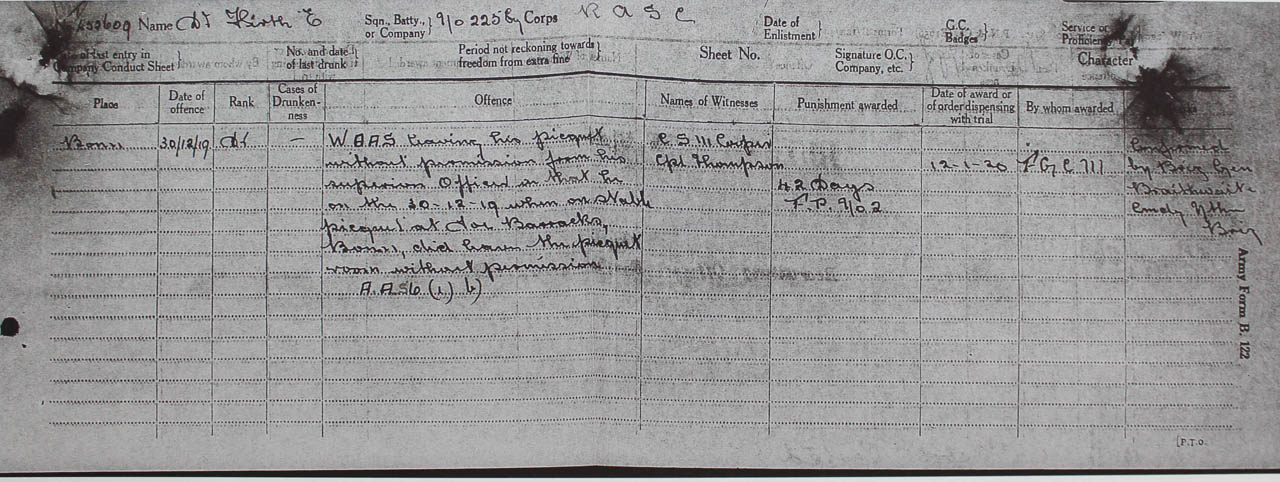 Name Dr Firth E Sqn., Batty., or Company} 9/0 225 Coy Corps R A S C Date of Enlistment} G.C. Badges} Service or Proficiency Pay
Date of last entry in Company Conduct Sheet} No. and date of last drunk} Period not reckoning towards freedom from extra fine} Sheet No. Signature O.C. Company, etc.} Character
Place Date of offence Rank Cases of Drunken-ness Offence Names of Witnesses Punishment awarded Date of award or of order dispensing with trial By whom awarded
Bonn 30/12/19 Dr — W.O.A.S. Leaving his picquet C.S.M. Cooper Confirmed
without permission from his Cpl Thompson 12-1-20 F G C M by Brig Gen
superior Officer in that he 42 Days Braithwaite
on the 30-12-19 when on Stable F.P. No 2 Cmdg Nthn
picquet at Barracks, Brig
Bonn, did leave the picquet
room without permission
A.A S6 (1) b)
Army Form B. 122
[P.T.O.